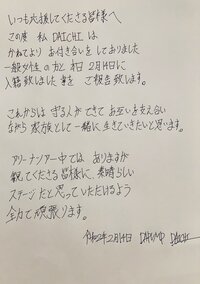 いつも応援してくださる皆様へ
この度 私 DAICHI は
かねてより お付き合いをしておりました
一般女性 の方 と 本日 2月14日に
入籍致しました 事を ご報告致します。
これからは 守る人が できて お互いを支えあい
ながら 家族として一緒に 生きていきたいと思います。
アリーナツアー中では ありますが
観てくださる皆様に、素晴らしい
ステージだと思っていただけるよう
全力で頑張ります。
2月14日 DAICHI